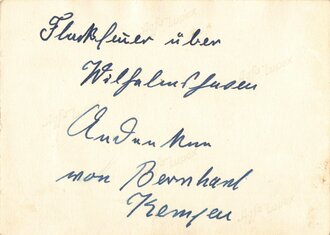 Flackfeuer über
Wilhelmshafen
Andenken
von Bernhard
Kempen